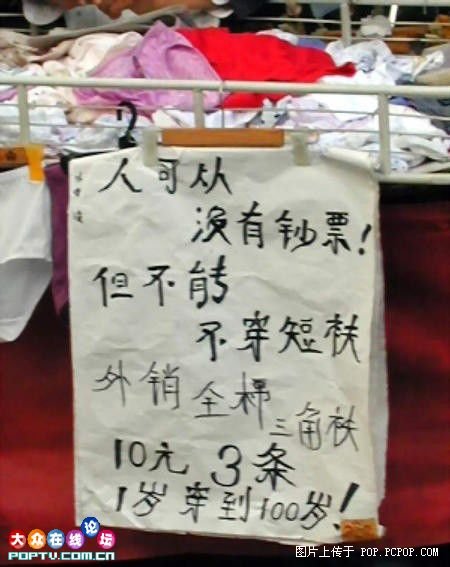 人可从
没有钞票!
但不能
不穿短衭
外销全棉三角衭
10元3条
1岁穿到100岁!
大众在线论坛
POPTV.COM.CN
图片上传于 POP.PCPOP.COM